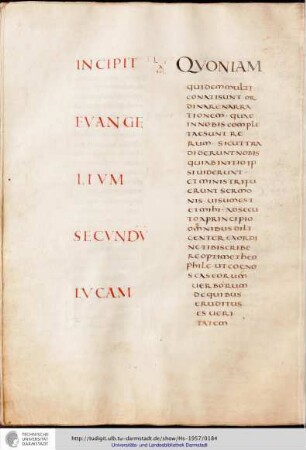 INCIPIT
EVANGE
LIUM
SECVNDV
LVCAM
QVONIAM
quidem multi
conati sunt or
dinare narra
tionem quae
in nobis comple
tae sunt re
rum sicut tra
diderunt nobis
qui ab initio ip
si uiderunt
et ministri fu
erunt sermo
nis uisum est
et mihi adsecu
to a principio
omnibus dili
genter ex ordi
ne tibi scribe
re optime theo
phile ut cogno
scas eorum
uerborum
de quibus
eruditus
es ueri
tatem
TECHNISCHE
UNIVERSITÄT
DARMSTADT
http://tudigit.ulb.tu-darmstadt.de/show/Hs-1957/0184
Universitäts- und Landesbibliothek Darmstadt